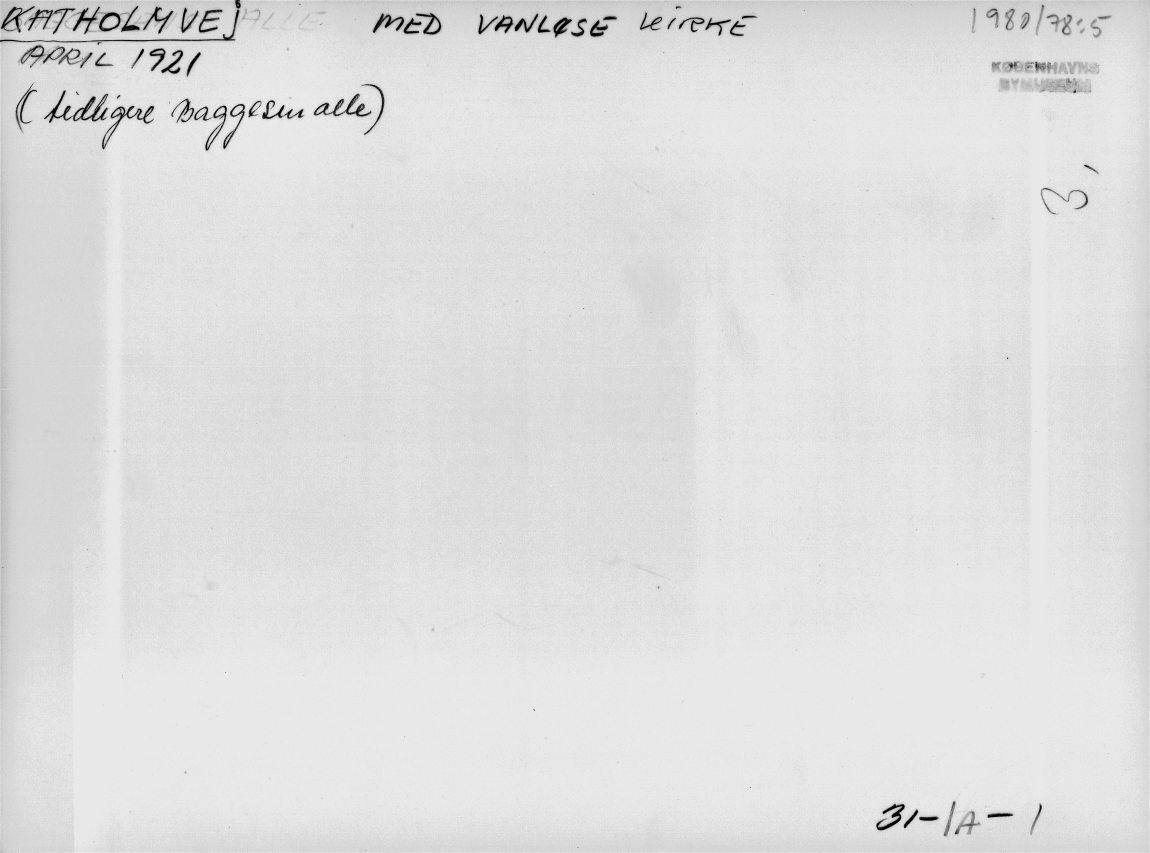 KATHOLMVEj ALLE MED VANLØSE KIRKE
APRIL 1921
(tidligere Baggesen alle)
1980/78:5
KØBENHAVNS
BYMUSEUM
3,
31-1A-1